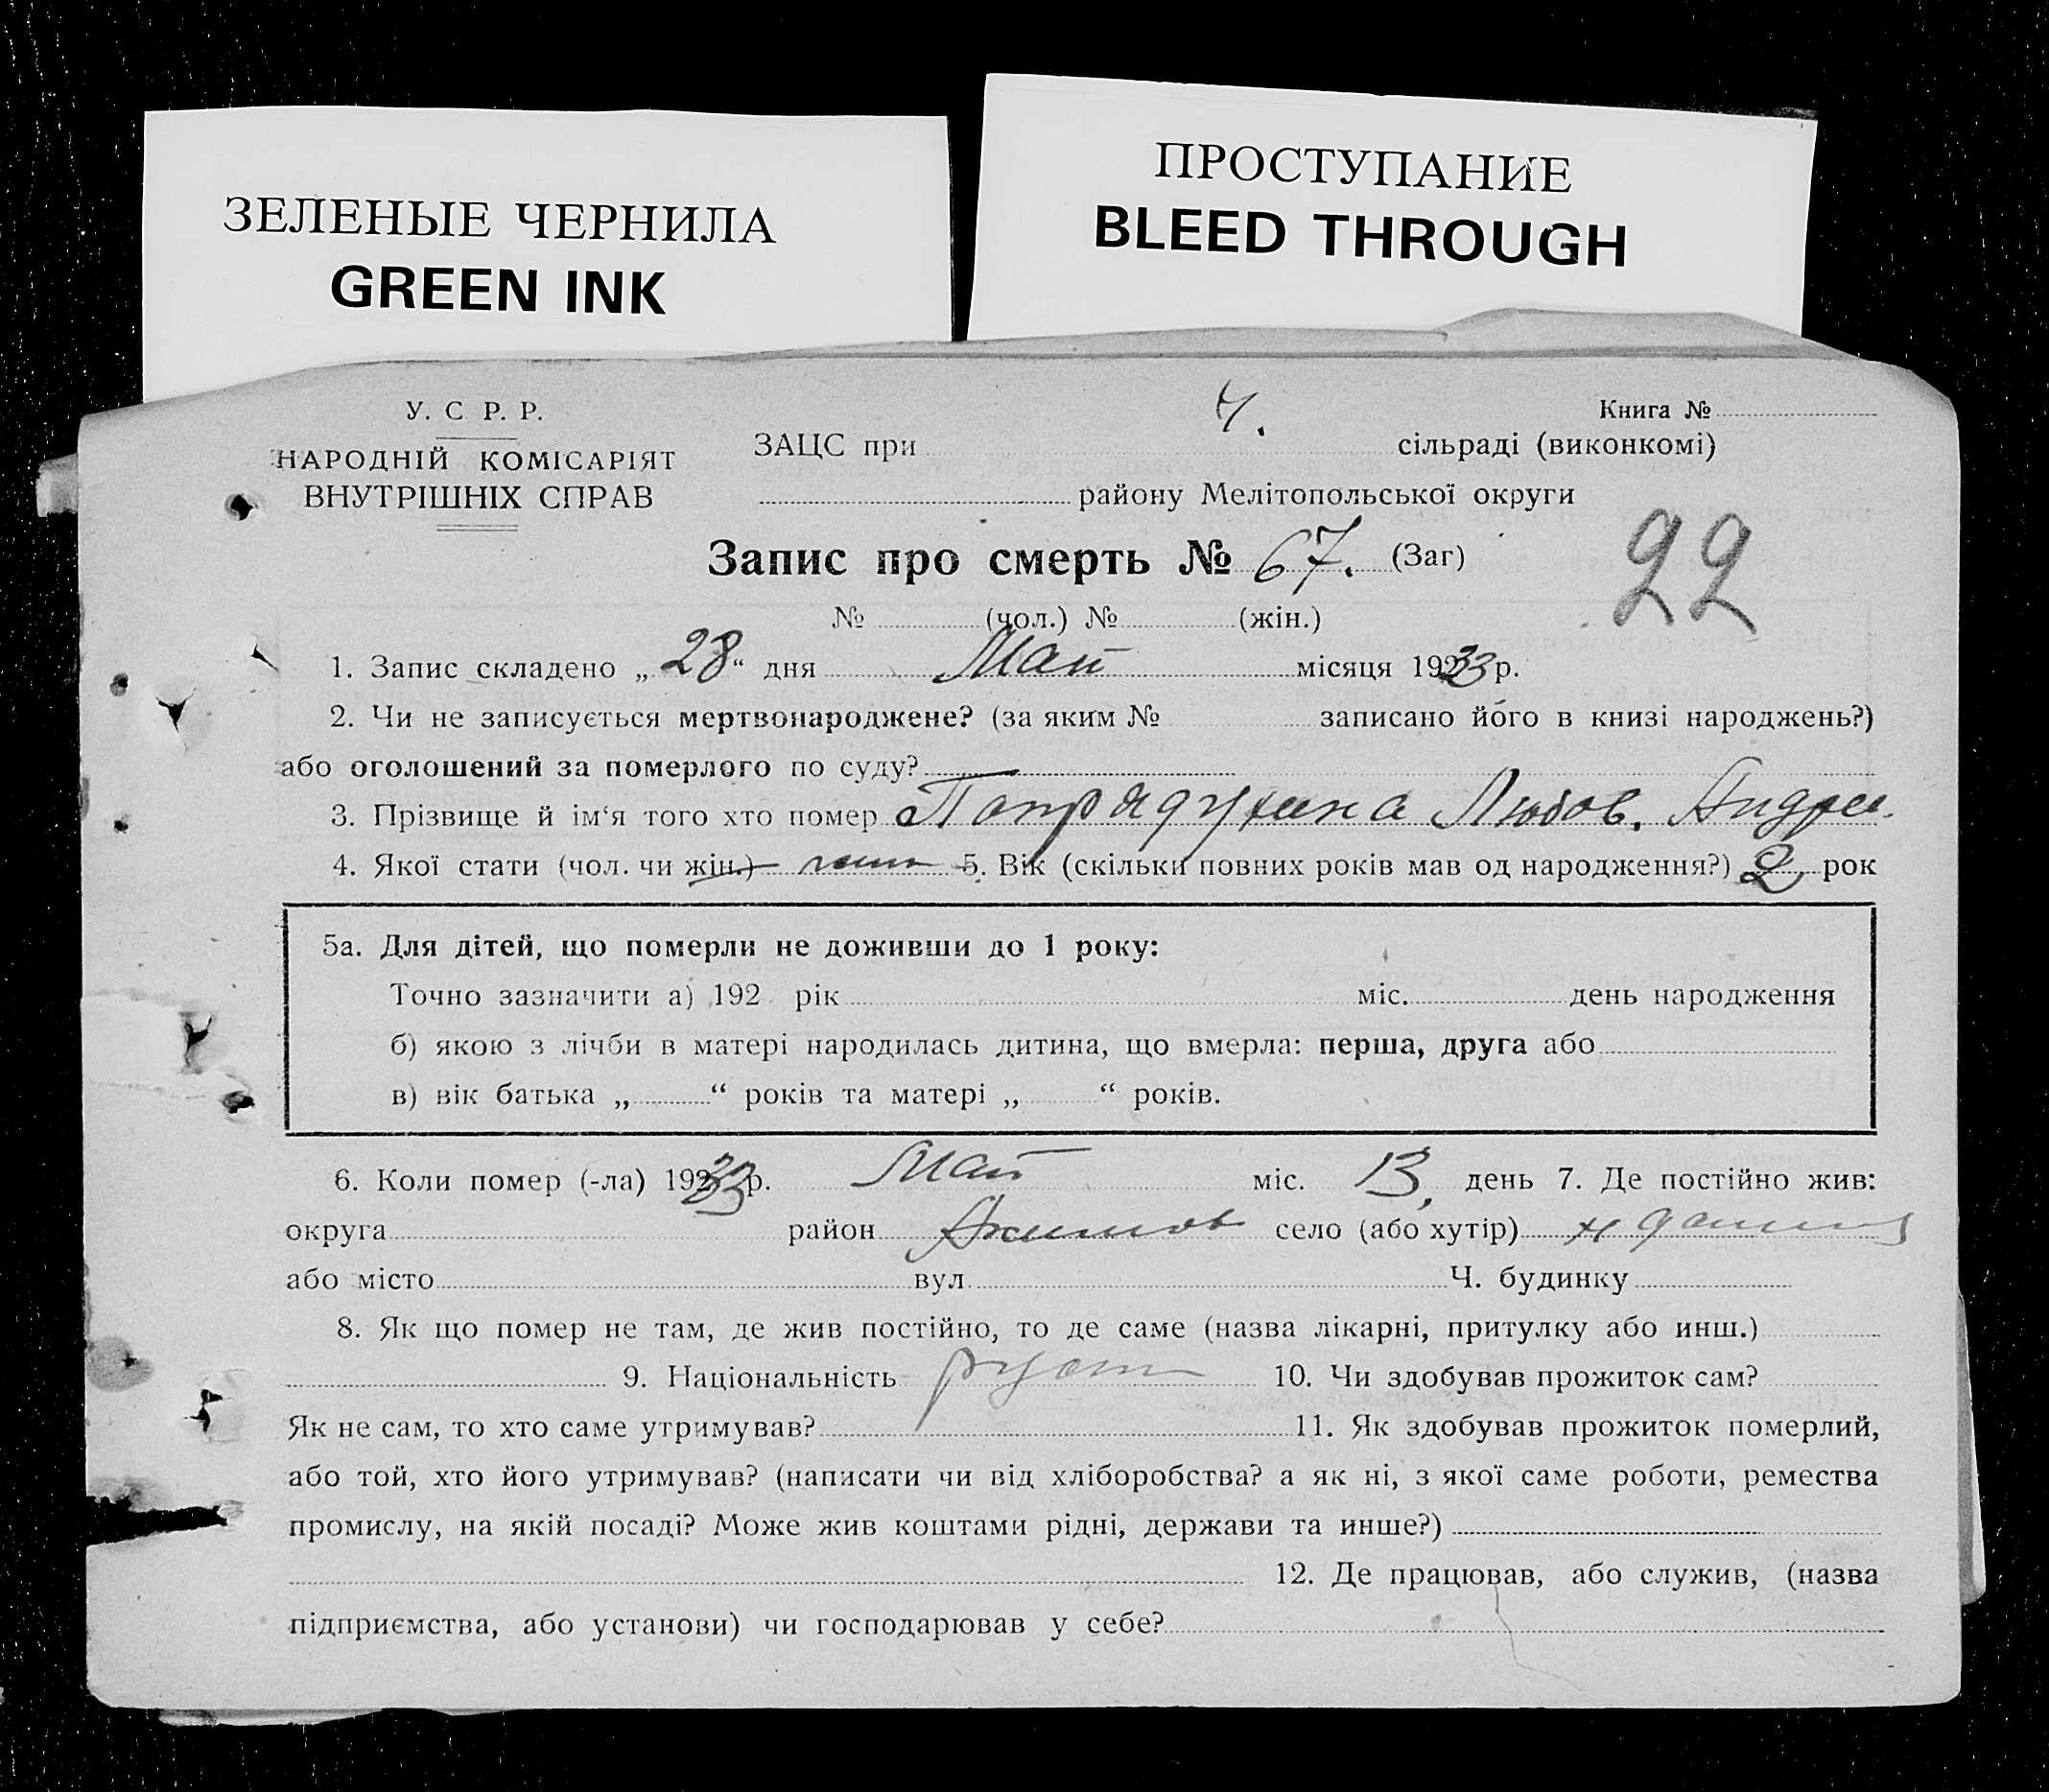 ЗЕЛЕНЫЕ ЧЕРНИЛА
GREEN INK
ПРОСТУПАНИЕ
BLEED THROUGH
У. С. Р. Р.
НАРОДНІЙ КОМІСАРІЯТ
ВНУТРІШНІХ СПРАВ
Книга №
ЗАЦС при сільраді (виконкомі)
району Мелітопольської округи
22
Запис про смерть № 67. (Заг)
№ (чол.) № (жін.)
1. Запис складено „ 28 “ дня Май місяця 19233 р.
2. Чи не записується мертвонароджене? (за яким № записано його в книзі народжень?)
або оголошений за померлого по суду?
3. Прізвище й ім‘я того хто помер Любов. Андре.
4. Якої стати (чол. чи жін.) 5. Вік (скільки повних років мав од народження?) 2 рок
5а. Для дітей, що померли не доживши до 1 року:
Точно зазначити а) 192 рік міс. день народження
б) якою з лічби в матері народилась дитина, що вмерла: перша, друга або
в) вік батька „ “ років та матері „ “ років.
6. Коли помер (-ла) 19233 р. Май міс. 13, день 7. Де постійно жив:
округа район Акимов село (або хутір)
або місто вул. Ч. будинку
8. Як що помер не там, де жив постійно, то де саме (назва лікарні, притулку або инш.)
9. Національність 10. Чи здобував прожиток сам?
Як не сам, то хто саме утримував? 11. Як здобував прожиток померлий,
або той, хто його утримував? (написати чи від хліборобства? а як ні, з якої саме роботи, ремества
промислу, на якій посаді? Може жив коштами рідні, держави та инше?)
12. Де працював, або служив, (назва
підприємства, або установи) чи господарював у себе?